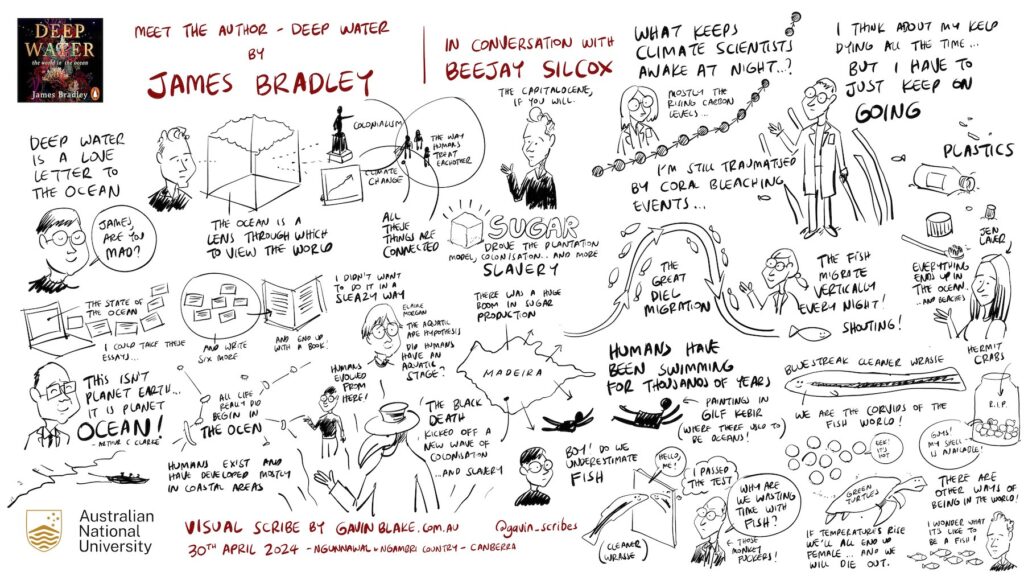 DEEP
WATER
the world in the ocean
James Bradley
MEET THE AUTHOR - DEEP WATER
BY
JAMES BRADLEY
IN CONVERSATION WITH
BEEJAY SILCOX
WHAT KEEPS
CLIMATE SCIENTISTS
AWAKE AT NIGHT...?
MOSTLY THE
RISING CARBON
LEVELS...
I THINK ABOUT MY KELP
DYING ALL THE TIME...
BUT I HAVE TO
JUST KEEP ON
GOING
I'M STILL TRAUMATISED
BY CORAL BLEACHING
EVENTS...
DEEP WATER
IS A LOVE
LETTER TO
THE OCEAN
JAMES,
ARE YOU
MAD?
THE OCEAN IS A
LENS THROUGH WHICH
TO VIEW THE WORLD
COLONIALISM
CLIMATE
CHANGE
THE WAY
HUMANS
TREAT
EACHOTHER
ALL
THESE
THINGS ARE
CONNECTED
THE CAPITALOCENE,
IF YOU WILL.
SUGAR
DROVE THE PLANTATION
MODEL, COLONISATION... AND MORE
SLAVERY
PLASTICS
JEN
LAVER
EVERYTHING
ENDS UP IN
THE OCEAN.
...AND BEACHES
THE STATE OF
THE OCEAN
I COULD TAKE THESE
ESSAYS...
AND WRITE
SIX MORE
AND END UP
WITH A BOOK!
I DIDN'T WANT
TO DO IT IN A
SLEAZY WAY
ELAINE
MORGAN
THE AQUATIC
APE HYPOTHESIS
DID HUMANS
HAVE AN
AQUATIC
STAGE?
THERE WAS A HUGE
BOOM IN SUGAR
PRODUCTION
MADEIRA
THE
GREAT
DIEL
MIGRATION
THE FISH
MIGRATE
VERTICALLY
EVERY NIGHT!
SHOUTING!
THIS ISN'T
PLANET EARTH...
IT IS PLANET
OCEAN!
- ARTHUR C CLARKE
ALL LIFE
REALLY DID
BEGIN IN
THE OCEN
HUMANS
EVOLVED
FROM
HERE!
HUMANS EXIST AND
HAVE DEVELOPED MOSTLY
IN COASTAL AREAS
THE BLACK
DEATH
KICKED OFF A
NEW WAVE OF
COLONISATION
...AND SLAVERY
HUMANS HAVE
BEEN SWIMMING
FOR THOUSANDS OF YEARS
PAINTING IN
GILF KEBIR
(WHERE THERE USED TO
BE OCEANS!)
BLUESTREAK CLEANER WRASSE
WE ARE THE CORVIDS OF THE
FISH WORLD!
HERMIT
CRABS
R.I.P.
GUYS!
MY SHELL
IS AVAILABLE!
BOY! DO WE
UNDERESTIMATE
FISH
HELLO,
ME!
(CLEANER
WRASSE)
I PASSED
THE TEST
WHY ARE
WE WASTING
TIME WITH
FISH?
THOSE
MONKEY
FUCKERS!
EEK!
IT'S
HOT
GREEN
TURTLES
IF TEMPERATURES RISE
WE'LL ALL END UP
FEMALE... AND WE
WILL DIE OUT.
THERE ARE
OTHER WAYS OF
BEING IN THE WORLD!
I WONDER WHAT
IT'S LIKE TO
BE A FISH!
Australian
National
University
VISUAL SCRIBE BY GAVIN BLAKE.COM.AU
@gavin_scribes
30TH APRIL 2024 - NGUNNAWAL & NGAMBRI COUNTRY - CANBERRA